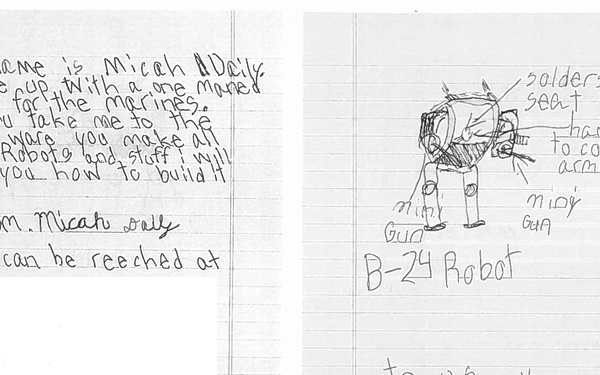 ame is Micah Daily.
e up with a one maned
for the marines.
u take me to the
ware you make all
Robots and stuff i will
you how to build it
m. Micah Daily
can be reeched at
salders
seat
han
to co
arm
mini
Gun
miny
Gun
B-24 Robot